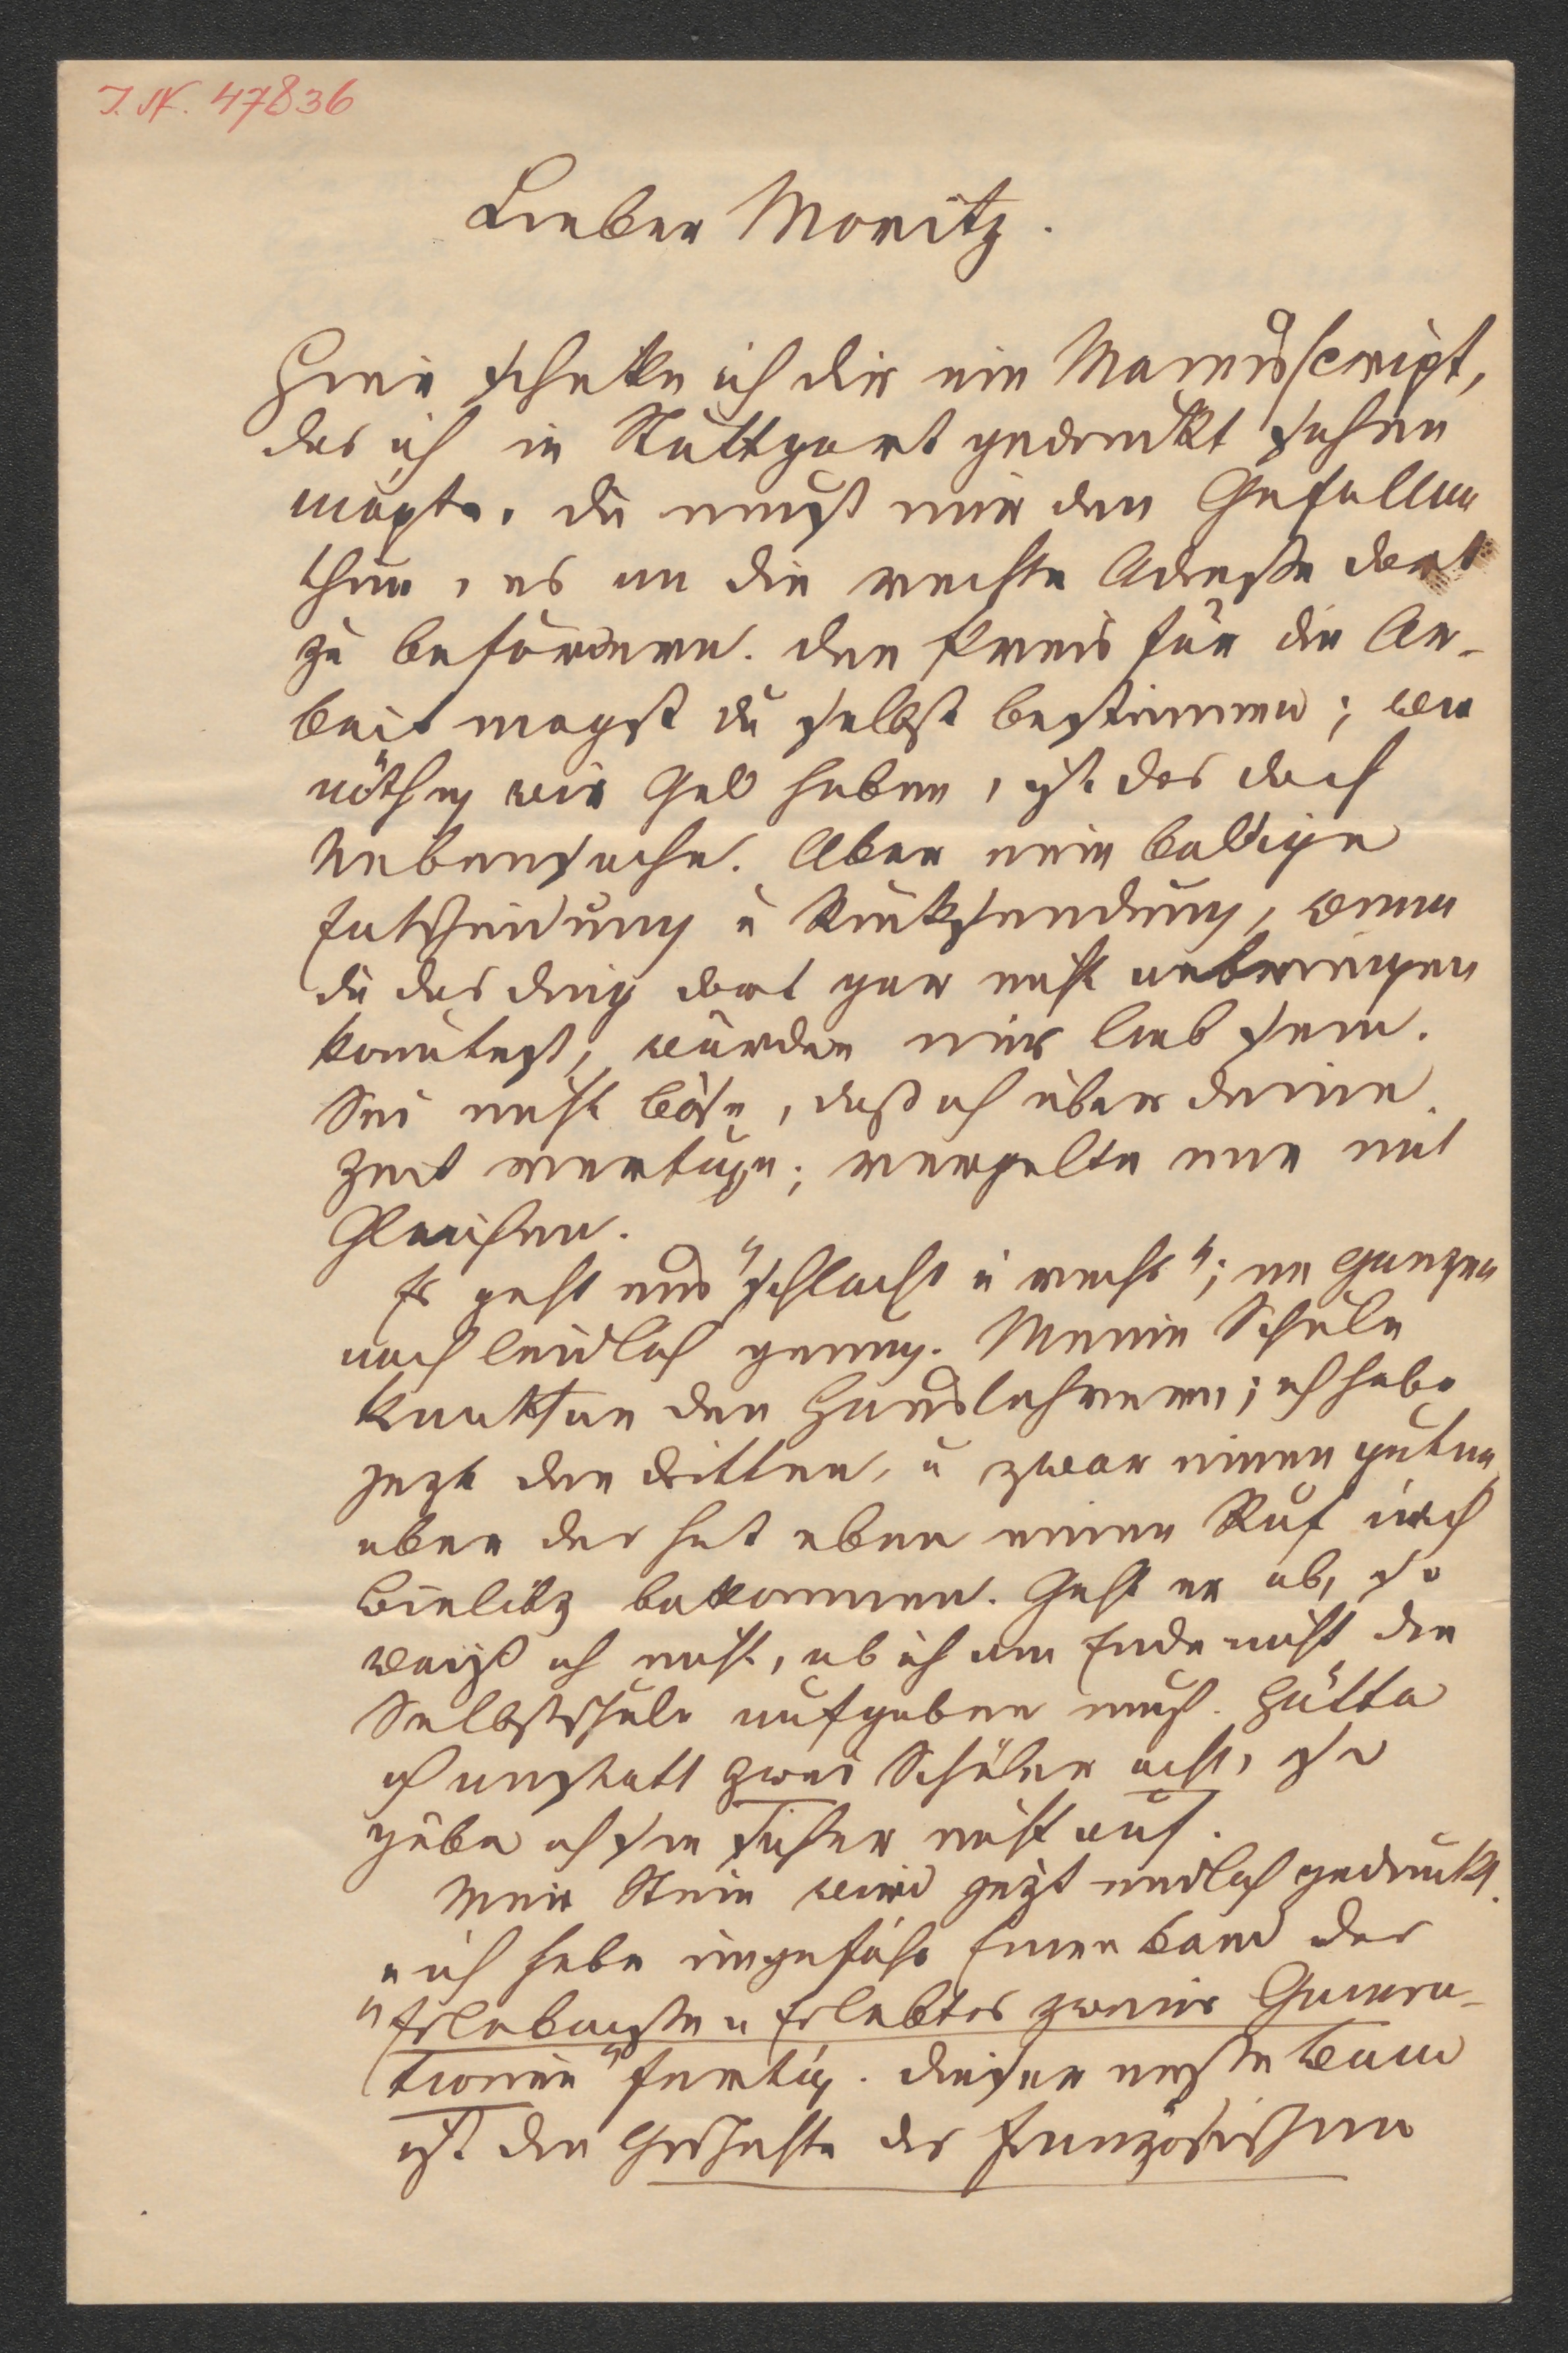 I. N. 47836
Lieber Moritz.
Hier schicke ich dir ein Manuscript,
das ich in Stuttgart gedruckt sehen
mögte. Du must mir den Gefallen
thun, es an die rechte Adresse dort
zu befördern. Den Preis für die Ar-
beit magst du selbst bestimmen; wie
nöthig wir Geld haben, ist das doch
Nebensache. Aber eine baldige
Entscheidung u Rücksendung, wenn
du das Ding dort gar nicht anbringen
könntest, würden mir lieb sein.
Sei nicht böse, daß ich über deine
Zeit verfüge; vergelte mir mit
Gleichem.
Es geht uns "schlecht u recht"; im ganzen
noch leidlich genug. Meine Schule
krankt an den Hauslehrern; ich habe
jezt den dritten, u zwar einen guten,
aber der hat eben einen Ruf nach
Bielitz bekommen. Geht er ab, so
weiß ich nicht, ob ich am Ende nicht die
Selbstschule aufgeben muß. Hätte
ich anstatt zwei Schüler acht, so
gäbe ich sie sicher nicht auf.
Mein Stein wird jezt endlich gedruckt.
u ich habe ungefähr Einen Band der
"Erlebnisse u Erlebtes zweier Genera-
tionen" fertig. Dieser erste Band
ist die Geschichte der französischen